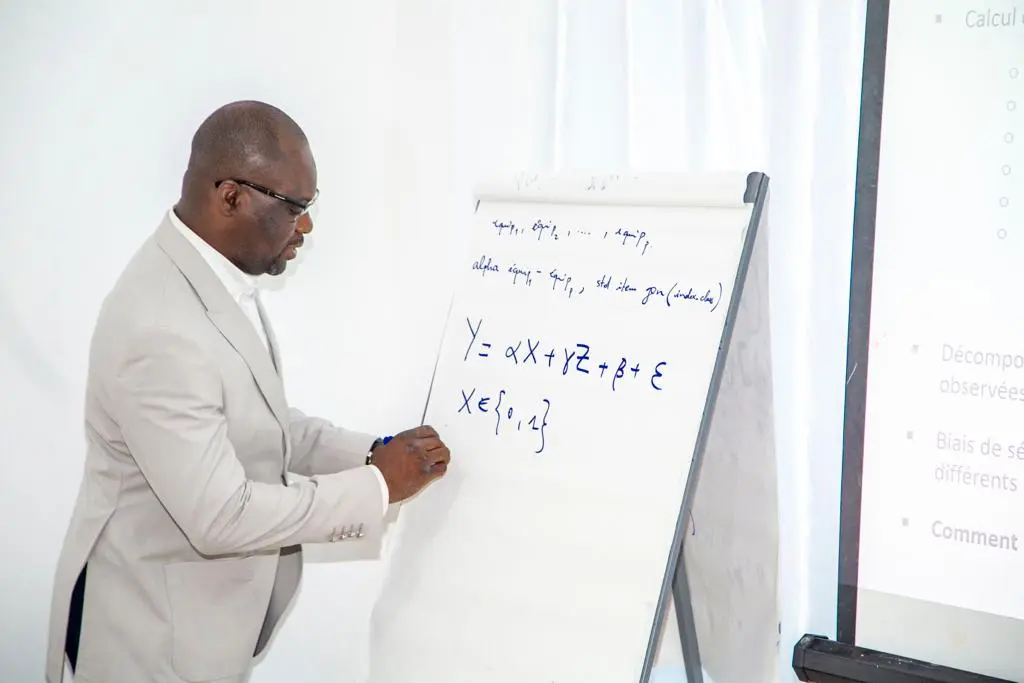 equip₁, equip₂, ..., equipₚ
alpha equip₁ - equipₚ, std item gen(index.clas)
Y = αX + γZ + β + ε
X ∈ {0, 1}
Calcul
Décompo
observées
Biais de sé
différents
Comment